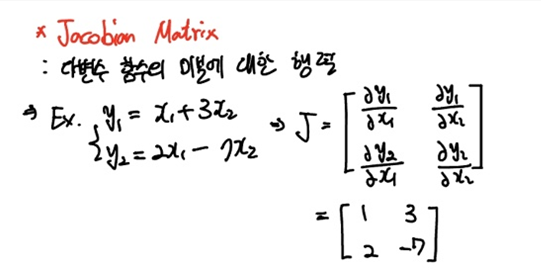 * Jacobian Matrix
: 다변수 함수의 미분에 대한 행렬
⇒ Ex. { y₁ = x₁ + 3x₂
y₂ = 2x₁ - 7x₂
⇒ J = [ ∂y₁/∂x₁ ∂y₁/∂x₂
∂y₂/∂x₁ ∂y₂/∂x₂ ]
= [ 1 3
2 -7 ]